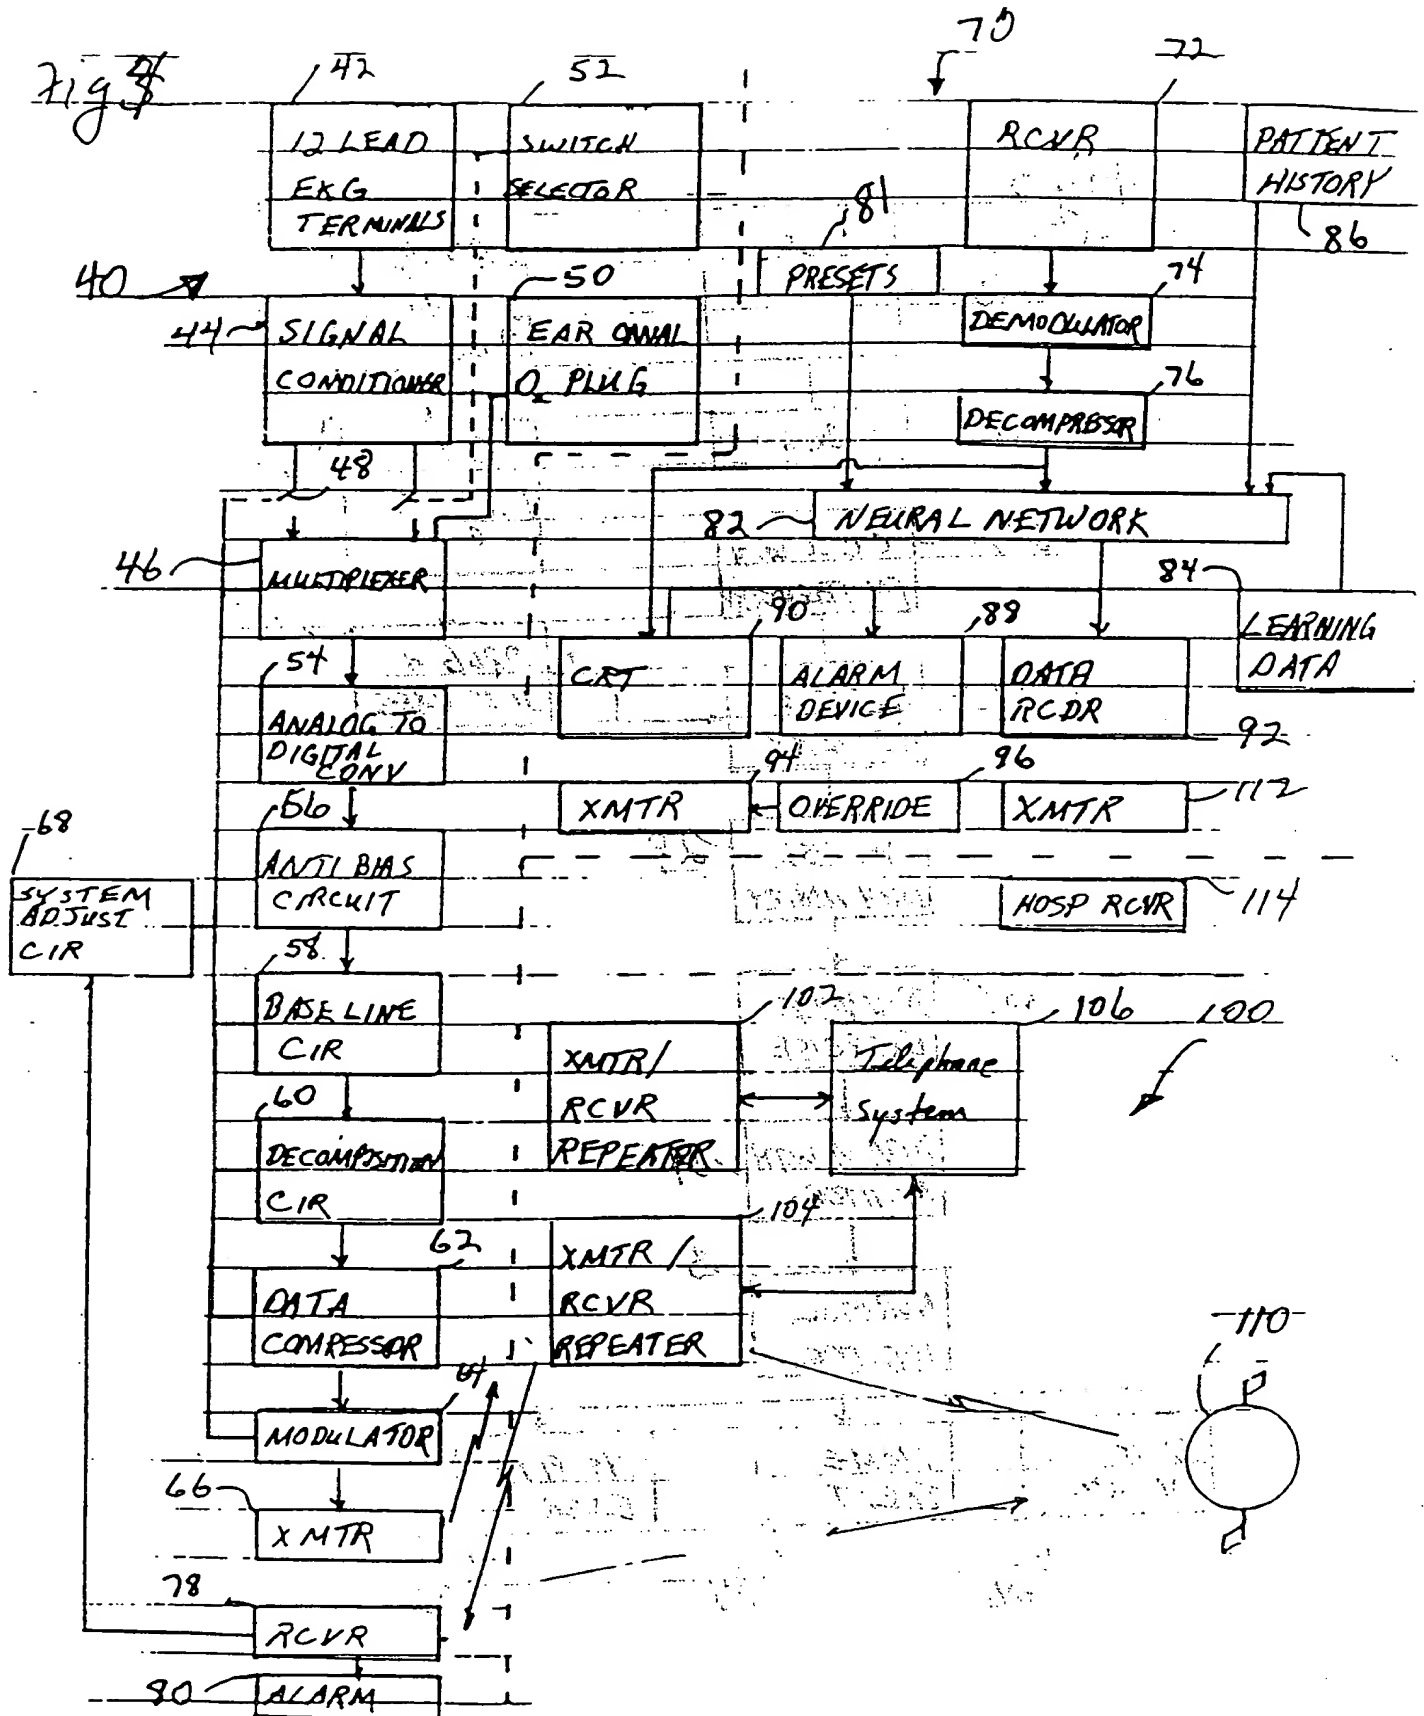 Fig
42
52
70
72
12 LEAD
EKG
TERMINALS
SWITCH
SELECTOR
RCVR
PATIENT
HISTORY
86
81
PRESETS
40
44
SIGNAL
CONDITIONER
50
EAR CANAL
O2 PLUG
74
DEMODULATOR
76
DECOMPRESSOR
48
82
NEURAL NETWORK
46
MULTIPLEXER
84
LEARNING
DATA
90
CRT
88
ALARM
DEVICE
DATA
RCDR
92
54
ANALOG TO
DIGITAL
CONV
94
XMTR
96
OVERRIDE
XMTR
112
68
SYSTEM
ADJUST
CIR
56
ANTI BIAS
CIRCUIT
HOSP RCVR
114
58
BASE LINE
CIR
102
XMTR/
RCVR
REPEATER
106
Telephone
System
100
60
DECOMPOSITION
CIR
104
XMTR/
RCVR
REPEATER
62
DATA
COMPESSOR
110
64
MODULATOR
66
XMTR
78
RCVR
80
ALARM